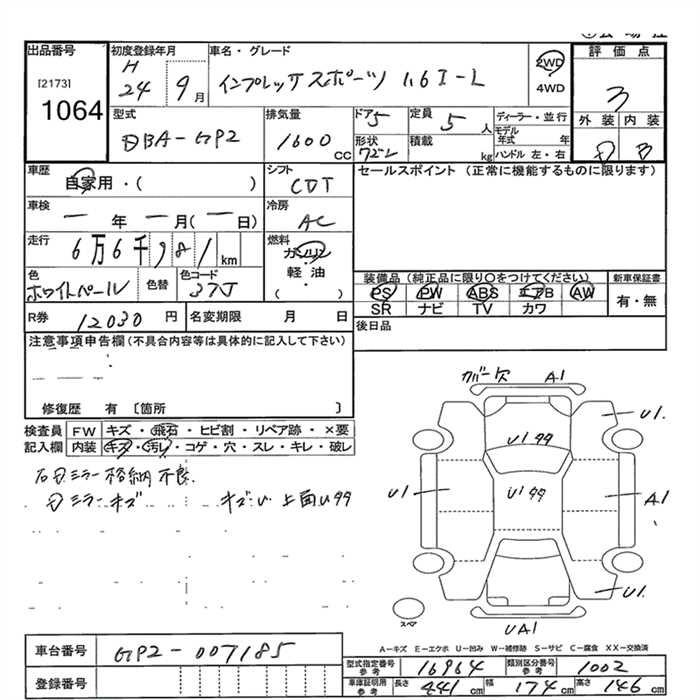 出品番号
[2173]
1064
初度登録年月
H 24 9月
車名・グレード
インプレッサスポーツ 1.6 I-L
2WD
4WD
評価点
3
外装 内装
B
型式
DBA-GP2
排気量
1600 cc
ドア 5
形状
定員 5 人
積載 kg
ディーラー・並行
モデル年式 年
ハンドル 左・右
車歴
自家用・( )
シフト
CDT
セールスポイント (正常に機能するものに限ります)
車検
一 年 一 月(一 日)
冷房
AC
走行
6万6千981 km
燃料
ガソリン
軽油
( )
色
ホワイトパール
色替
色コード
37J
装備品(純正品に限り○をつけてください)
PS PW ABS エアB AW
SR ナビ TV カワ
新車保証書
有・無
R券 12030円
名変期限 月 日
後日品
注意事項申告欄(不具合内容等は具体的に記入して下さい)
修復歴 有 〔箇所 〕
検査員記入欄
FW キズ・飛石・ヒビ割・リペア跡・×要
内装 キズ・汚れ・コゲ・穴・スレ・キレ・破レ
右Dミラー格納不良
Dミラーキズ
キズU 上面U99
カバー欠 A1
U1.
U199
U1
U199
A1
U1.
スペア
UA1
A-キズ E-エクボ U-凹み W-補修跡 S-サビ C-腐食 XX-交換済
車台番号
GP2-007185
登録番号
型式指定番号 参考
16964
類別区分番号 参考
1002
車庫証明用 参考
長さ 441 cm 幅 174 cm 高さ 146 cm